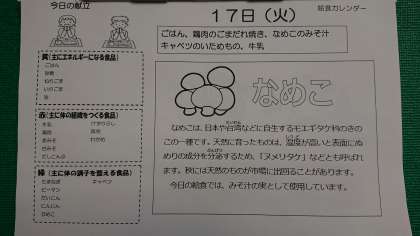 今日の献立
17日(火)
給食カレンダー
ごはん、鶏肉のごまだれ焼き、なめこのみそ汁
キャベツのいためもの、牛乳
黄(主にエネルギーになる食品)
ごはん
砂糖
ねりごま
油
赤(主に体の組織をつくる食品)
牛乳
鶏肉
赤みそ
白みそ
だしこんぶ
けずりぶし
豆腐
わかめ
緑(主に体の調子を整える食品)
たまねぎ キャベツ
ピーマン
だいこん
にんじん
なめこ
なめこ
なめこは、日本や台湾などに自生するモエギタケ科のきの
この一種です。天然に育ったものは、湿度が高いと表面にぬ
めりの成分を分泌するため、「ヌメリタケ」などとも呼ばれ
ます。秋には天然のものが市場に出回ることがあります。
今日の給食では、みそ汁の実として使用しています。